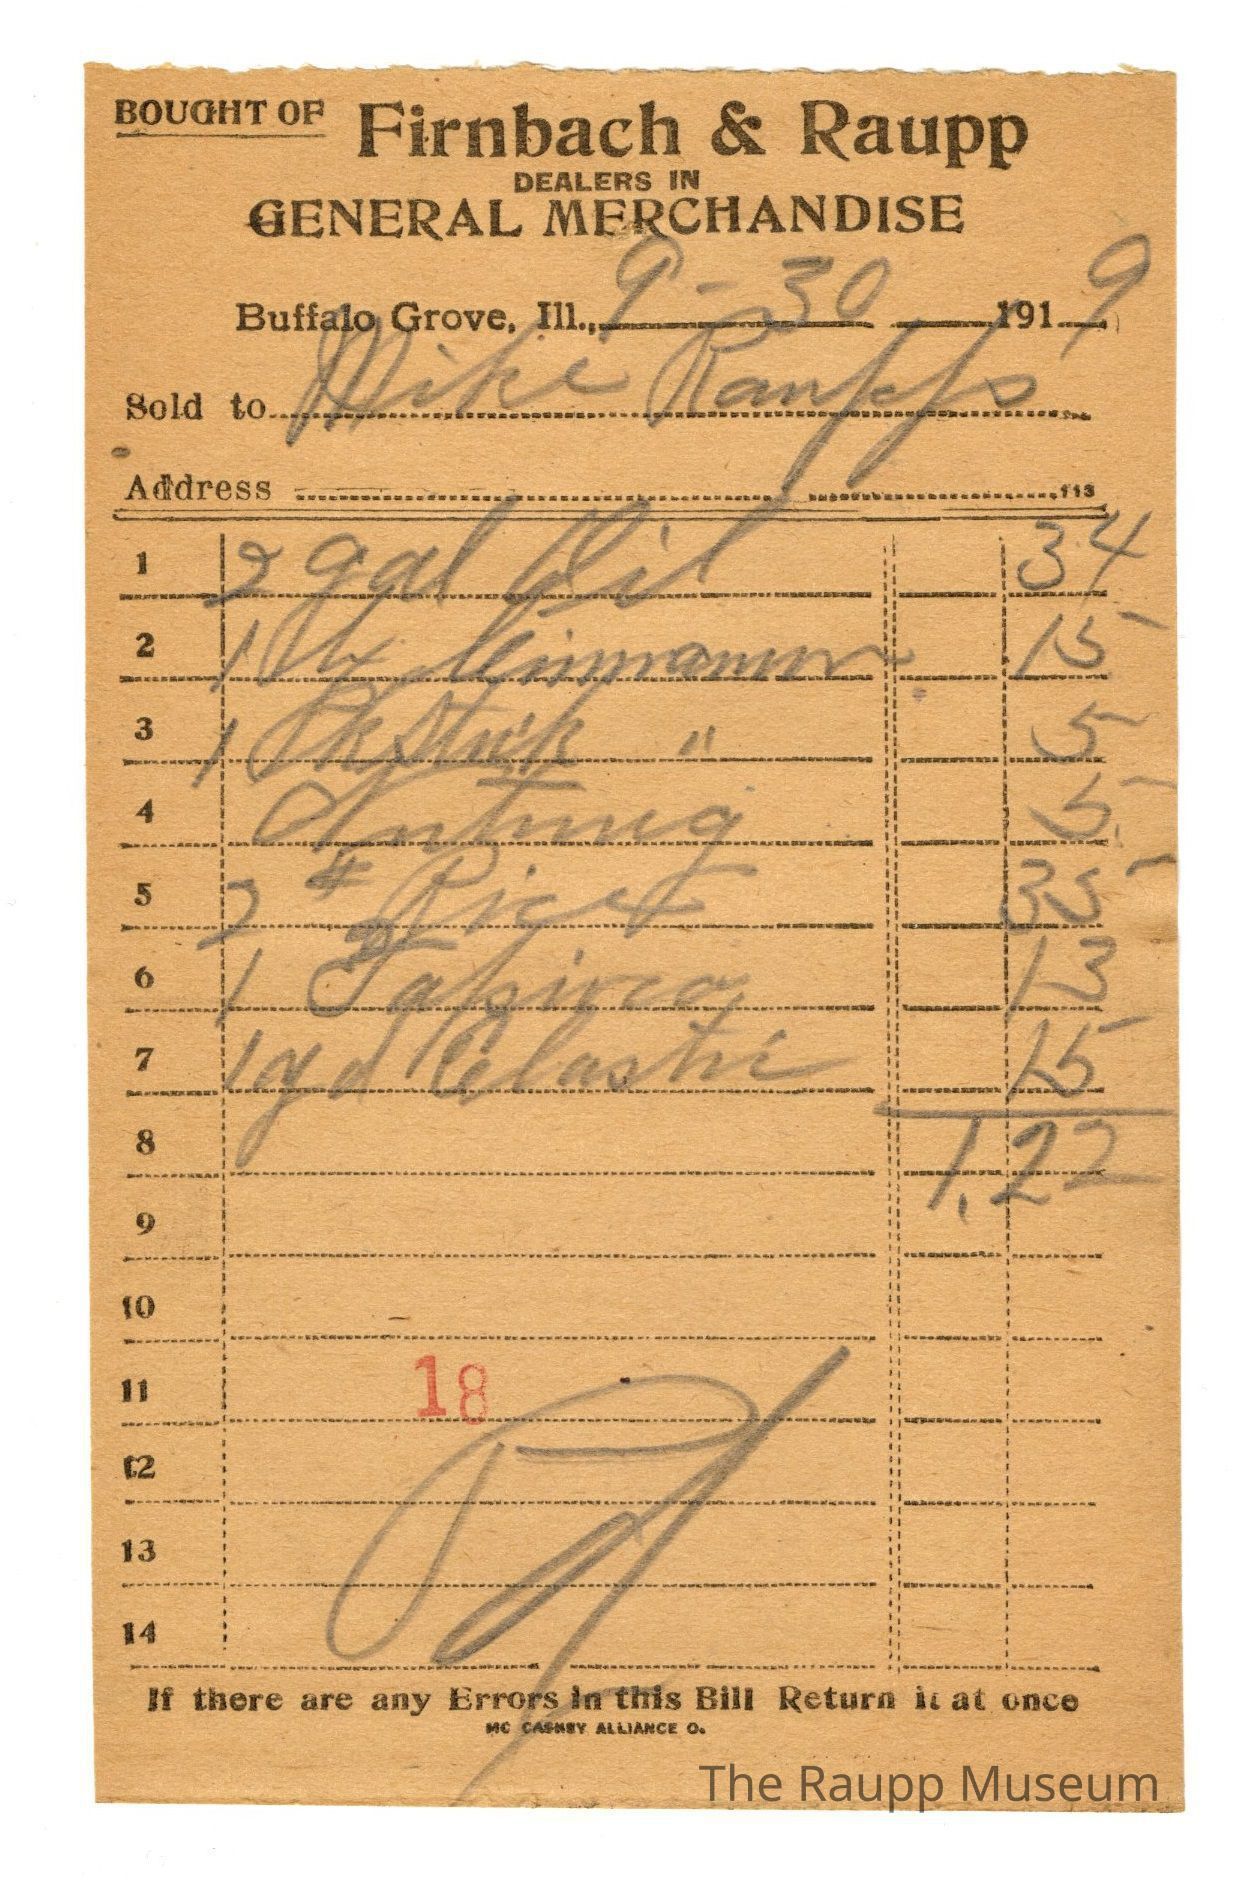 BOUGHT OF Firnbach & Raupp
DEALERS IN
GENERAL MERCHANDISE
Buffalo Grove, Ill., 9-30 1919
Sold to Mike Raupp
Address
113
1 2 gal Oil 34
2 1 Cinnamon 15
3 1 Pk Stick " 5
4 Nutmeg 5
5 2 # Rice 35
6 1 Tapioca 13
7 1 yd Elastic 15
8 1.22
9
10
11 18
12
13
14
If there are any Errors in this Bill Return it at once
MC CASKEY ALLIANCE O.
The Raupp Museum